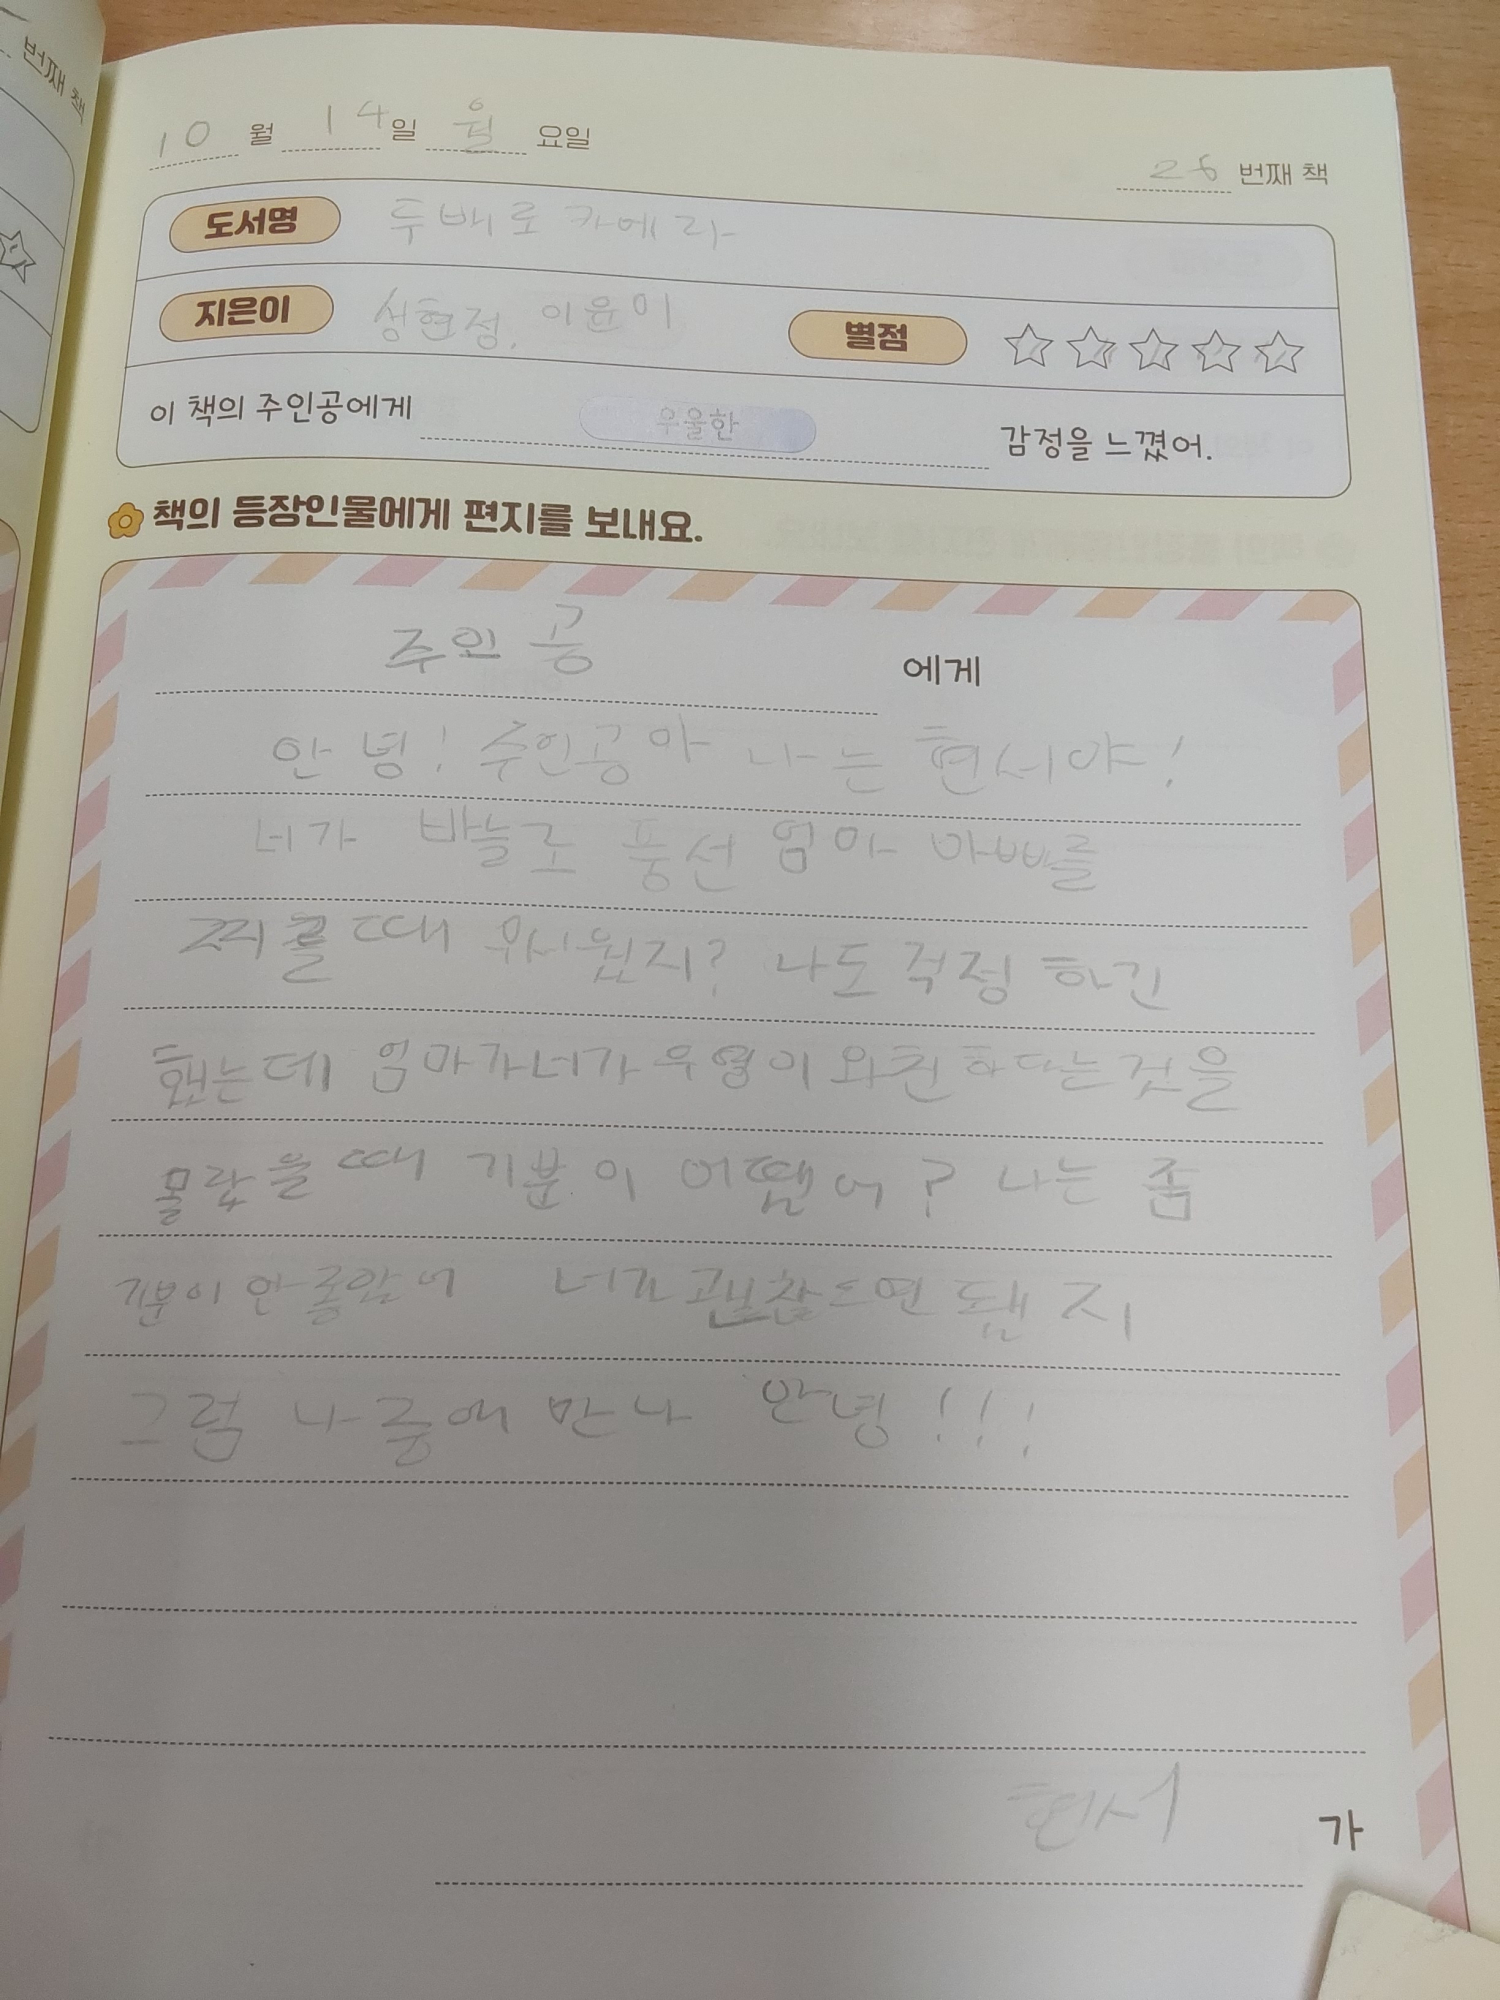 번째 책
10 월 14 일 월 요일
26 번째 책
도서명 두배로 카메라
지은이 성현정, 이윤이 별점
이 책의 주인공에게 우울한 감정을 느꼈어.
책의 등장인물에게 편지를 보내요.
주인공 에게
안녕! 주인공아 나는 현서야!
네가 바늘로 풍선 엄마 아빠를
찌를 때 무서웠지? 나도 걱정 하긴
했는데 엄마가 네가 우영이와 친하다는 것을
몰랐을 때 기분이 어땠어? 나는 좀
기분이 안 좋았어 네가 괜찮으면 됐지
그럼 나중에 만나 안녕!!!
현서 가